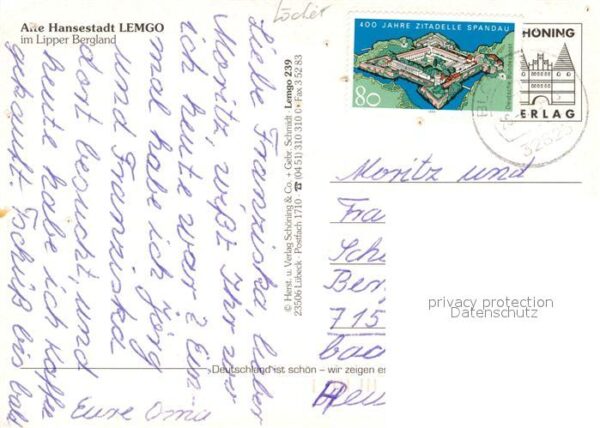 Alte Hansestadt LEMGO
im Lipper Bergland
Liebe Franziska, lieber
Moritz, wißt Ihr wo
ich heute war? Ein-
mal habe ich Jörg
und Franziska
dort besucht, und
heute habe ich Kaffee
gekauft. Tschüß bis bald
Eure Oma
© Herst. u. Verlag Schöning & Co. + Gebr. Schmidt
23506 Lübeck · Postfach 1710 · ☎ (04 51) 310 310 · Fax 3 52 83
Lemgo 239
Deutschland ist schön – wir zeigen es
400 JAHRE ZITADELLE SPANDAU
80
HÖNING
ERLAG
Moritz und
Fra
Sch
Ber
715
bac
privacy protection
Datenschutz